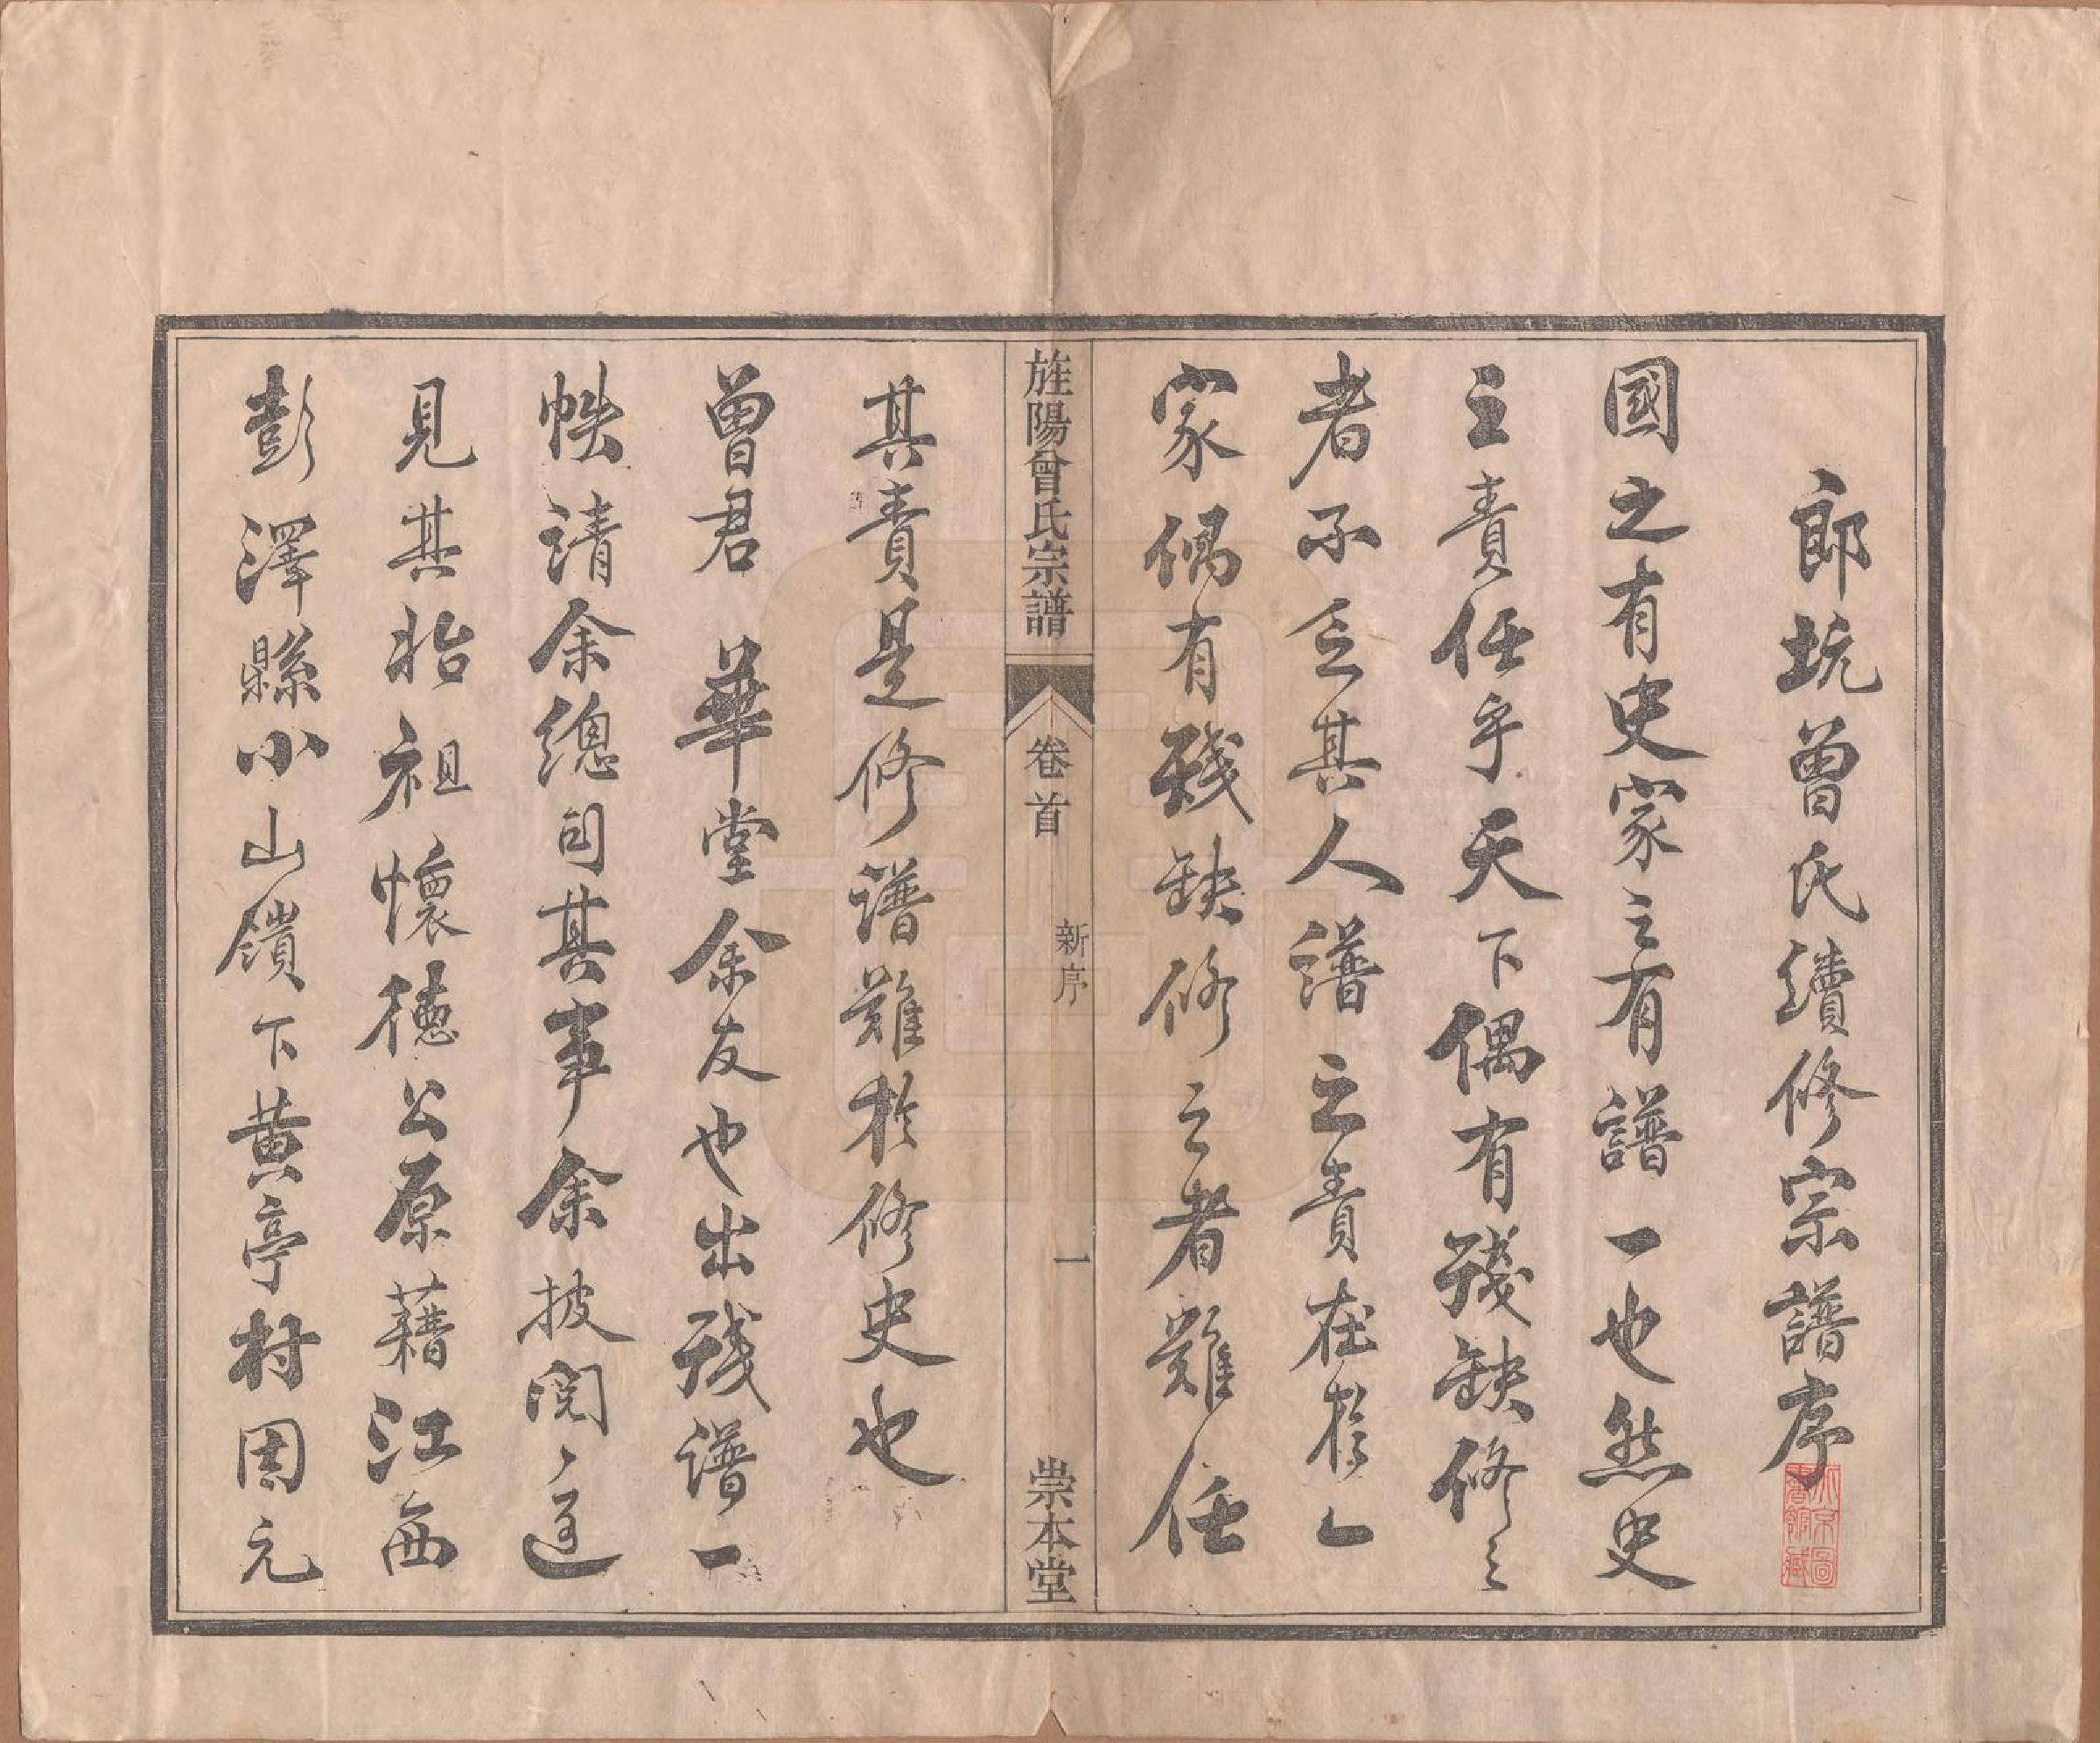 郎坑曾氏續修宗譜序
國之有史家之有譜一也然史
之責任乎天下偶有殘缺修之
者不乏其人譜之責在於一
家偶有殘缺修之者難任
旌陽曾氏宗譜 卷首 新序 一 崇本堂
其責是修譜難於修史也
曾君 華堂余友也出殘譜一
帙請余總司其事余披閱之遑
見其始祖懷德公原藉江西
彭澤縣小山鎮下黄亭村因元
北京圖書館藏